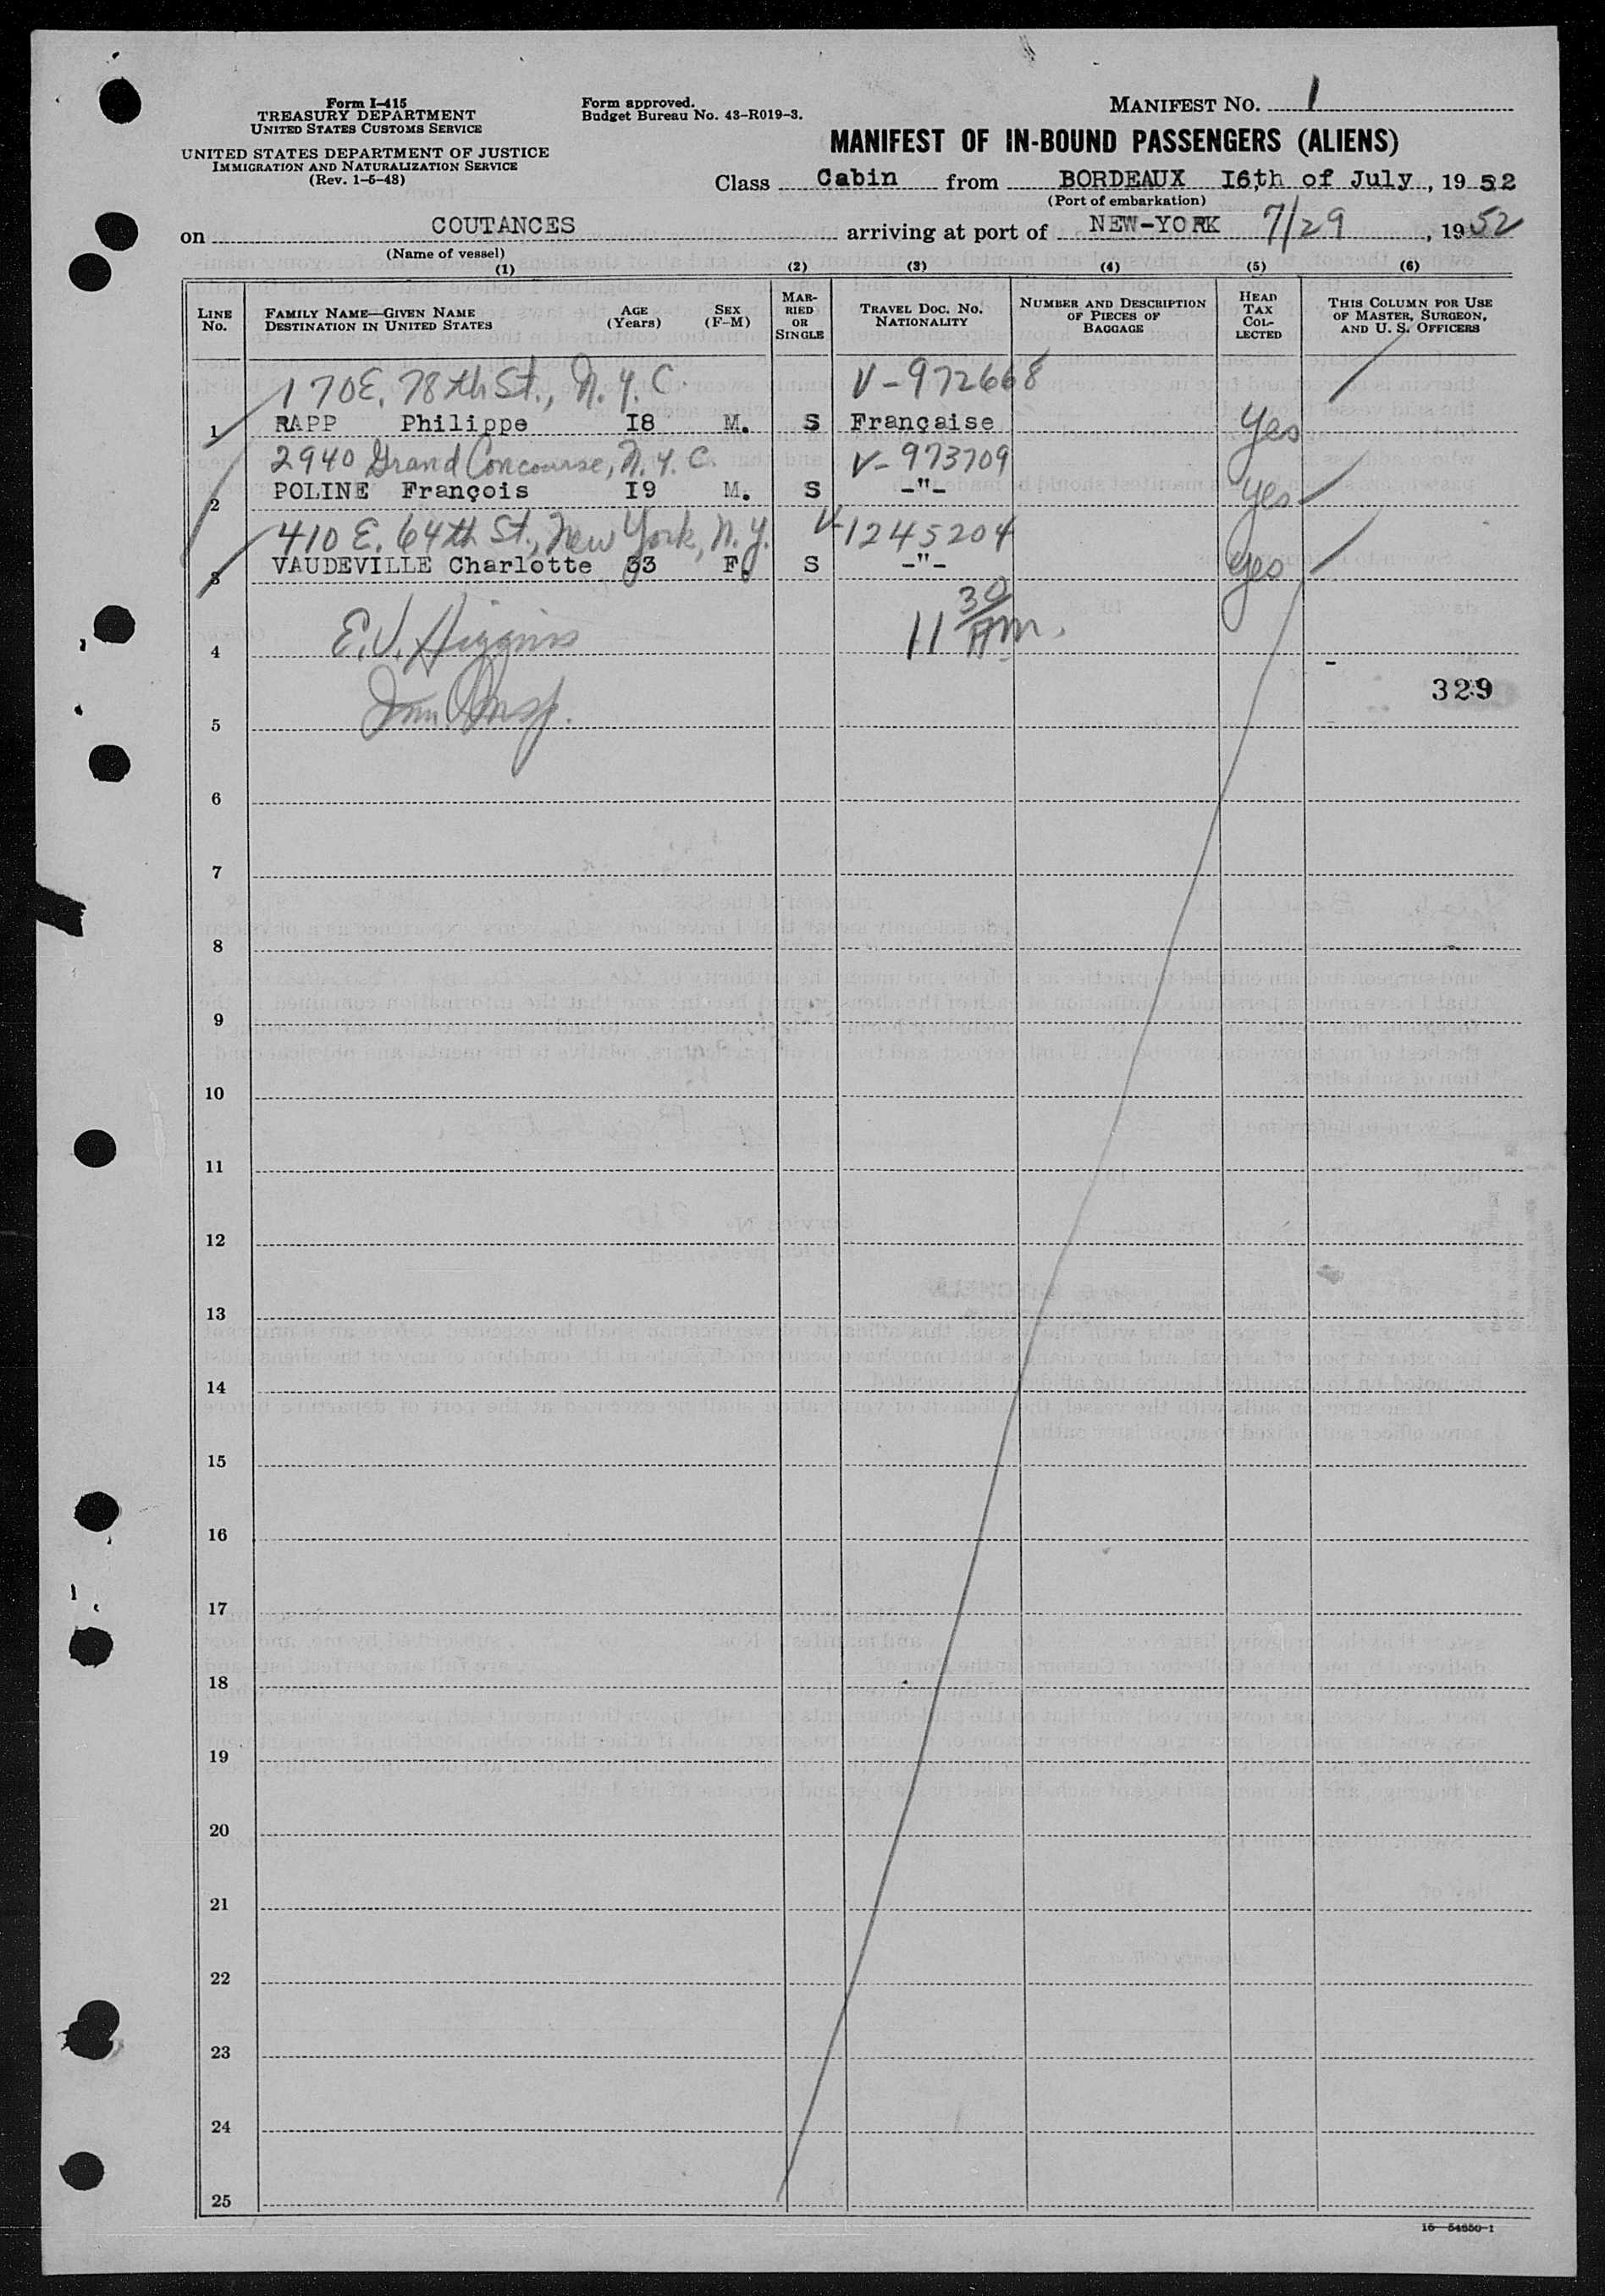 Form I-415
TREASURY DEPARTMENT
UNITED STATES CUSTOMS SERVICE
UNITED STATES DEPARTMENT OF JUSTICE
IMMIGRATION AND NATURALIZATION SERVICE
(Rev. 1-5-48)
Form approved.
Budget Bureau No. 43-R019-3.
MANIFEST NO. 1
MANIFEST OF IN-BOUND PASSENGERS (ALIENS)
Class Cabin from BORDEAUX I6th of July, 1952
(Port of embarkation)
on COUTANCES arriving at port of NEW-YORK 7/29, 1952
(Name of vessel)
(1) (2) (3) (4) (5) (6)
LINE No.
FAMILY NAME—GIVEN NAME
DESTINATION IN UNITED STATES
AGE (Years)
SEX (F-M)
MARRIED OR SINGLE
TRAVEL DOC. NO. NATIONALITY
NUMBER AND DESCRIPTION OF PIECES OF BAGGAGE
HEAD TAX COLLECTED
THIS COLUMN FOR USE OF MASTER, SURGEON, AND U. S. OFFICERS
170 E. 78th St., N.Y.C. V-972668
1 RAPP Philippe I8 M. S Française Yes
2940 Grand Concourse, N.Y.C. V-973709
2 POLINE François I9 M. S -"- Yes
410 E. 64th St., New York, N.Y. V-1245204
3 VAUDEVILLE Charlotte 33 F. S -"- Yes
4 E.J. Higgins 11 30 AM.
329
5 Imm. Insp.
6
7
8
9
10
11
12
13
14
15
16
17
18
19
20
21
22
23
24
25
16—54650-1